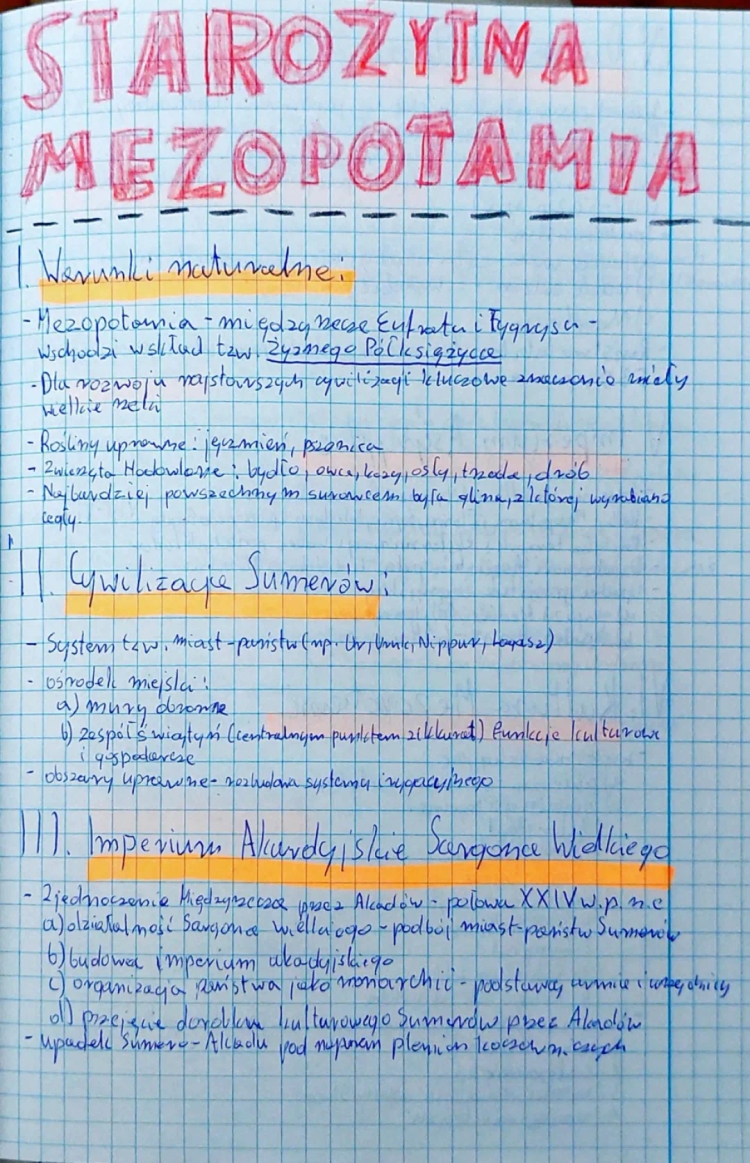 STAROŻYTNA
MEZOPOTAMIA
I. Warunki naturalne:
- Mezopotamia - międzyrzecze Eufratu i Tygrysu -
wschodzi w skład tzw. Żyznego Półksiężyca
- Dla rozwoju najstarszych cywilizacji kluczowe znaczenie miały
wielkie rzeki
- Rośliny uprawne: jęczmień, pszenica
- Zwierzęta Hodowlane: bydło, owce, kozy, osły, trzoda, drób
- Najbardziej powszechnym surowcem była glina, z której wyrabiano
cegły.
II. Cywilizacje Sumerów:
- System tzw. miast-państw (np. Ur, Uruk, Nippur, Lagasz)
- ośrodek miejski:
a) mury obronne
b) zespół świątyń (centralnym punktem zikkurat) funkcje kulturowe
i gospodarcze
- obszary uprawne - rozbudowa systemu irygacyjnego
III. Imperium Akadyjskie Sargona Wielkiego
- Zjednoczenie Międzyrzecza przez Akadów - połowa XXIV w. p. n. e
a) działalność Sargona Wielkiego - podbój miast-państw Sumerów
b) budowa imperium akadyjskiego
c) organizacja państwa jako monarchii - podstawą armia i urzędnicy
d) przejęcie dorobku kulturowego Sumerów przez Akadów
- upadek Sumero-Akadu pod naporem plemion koczowniczych